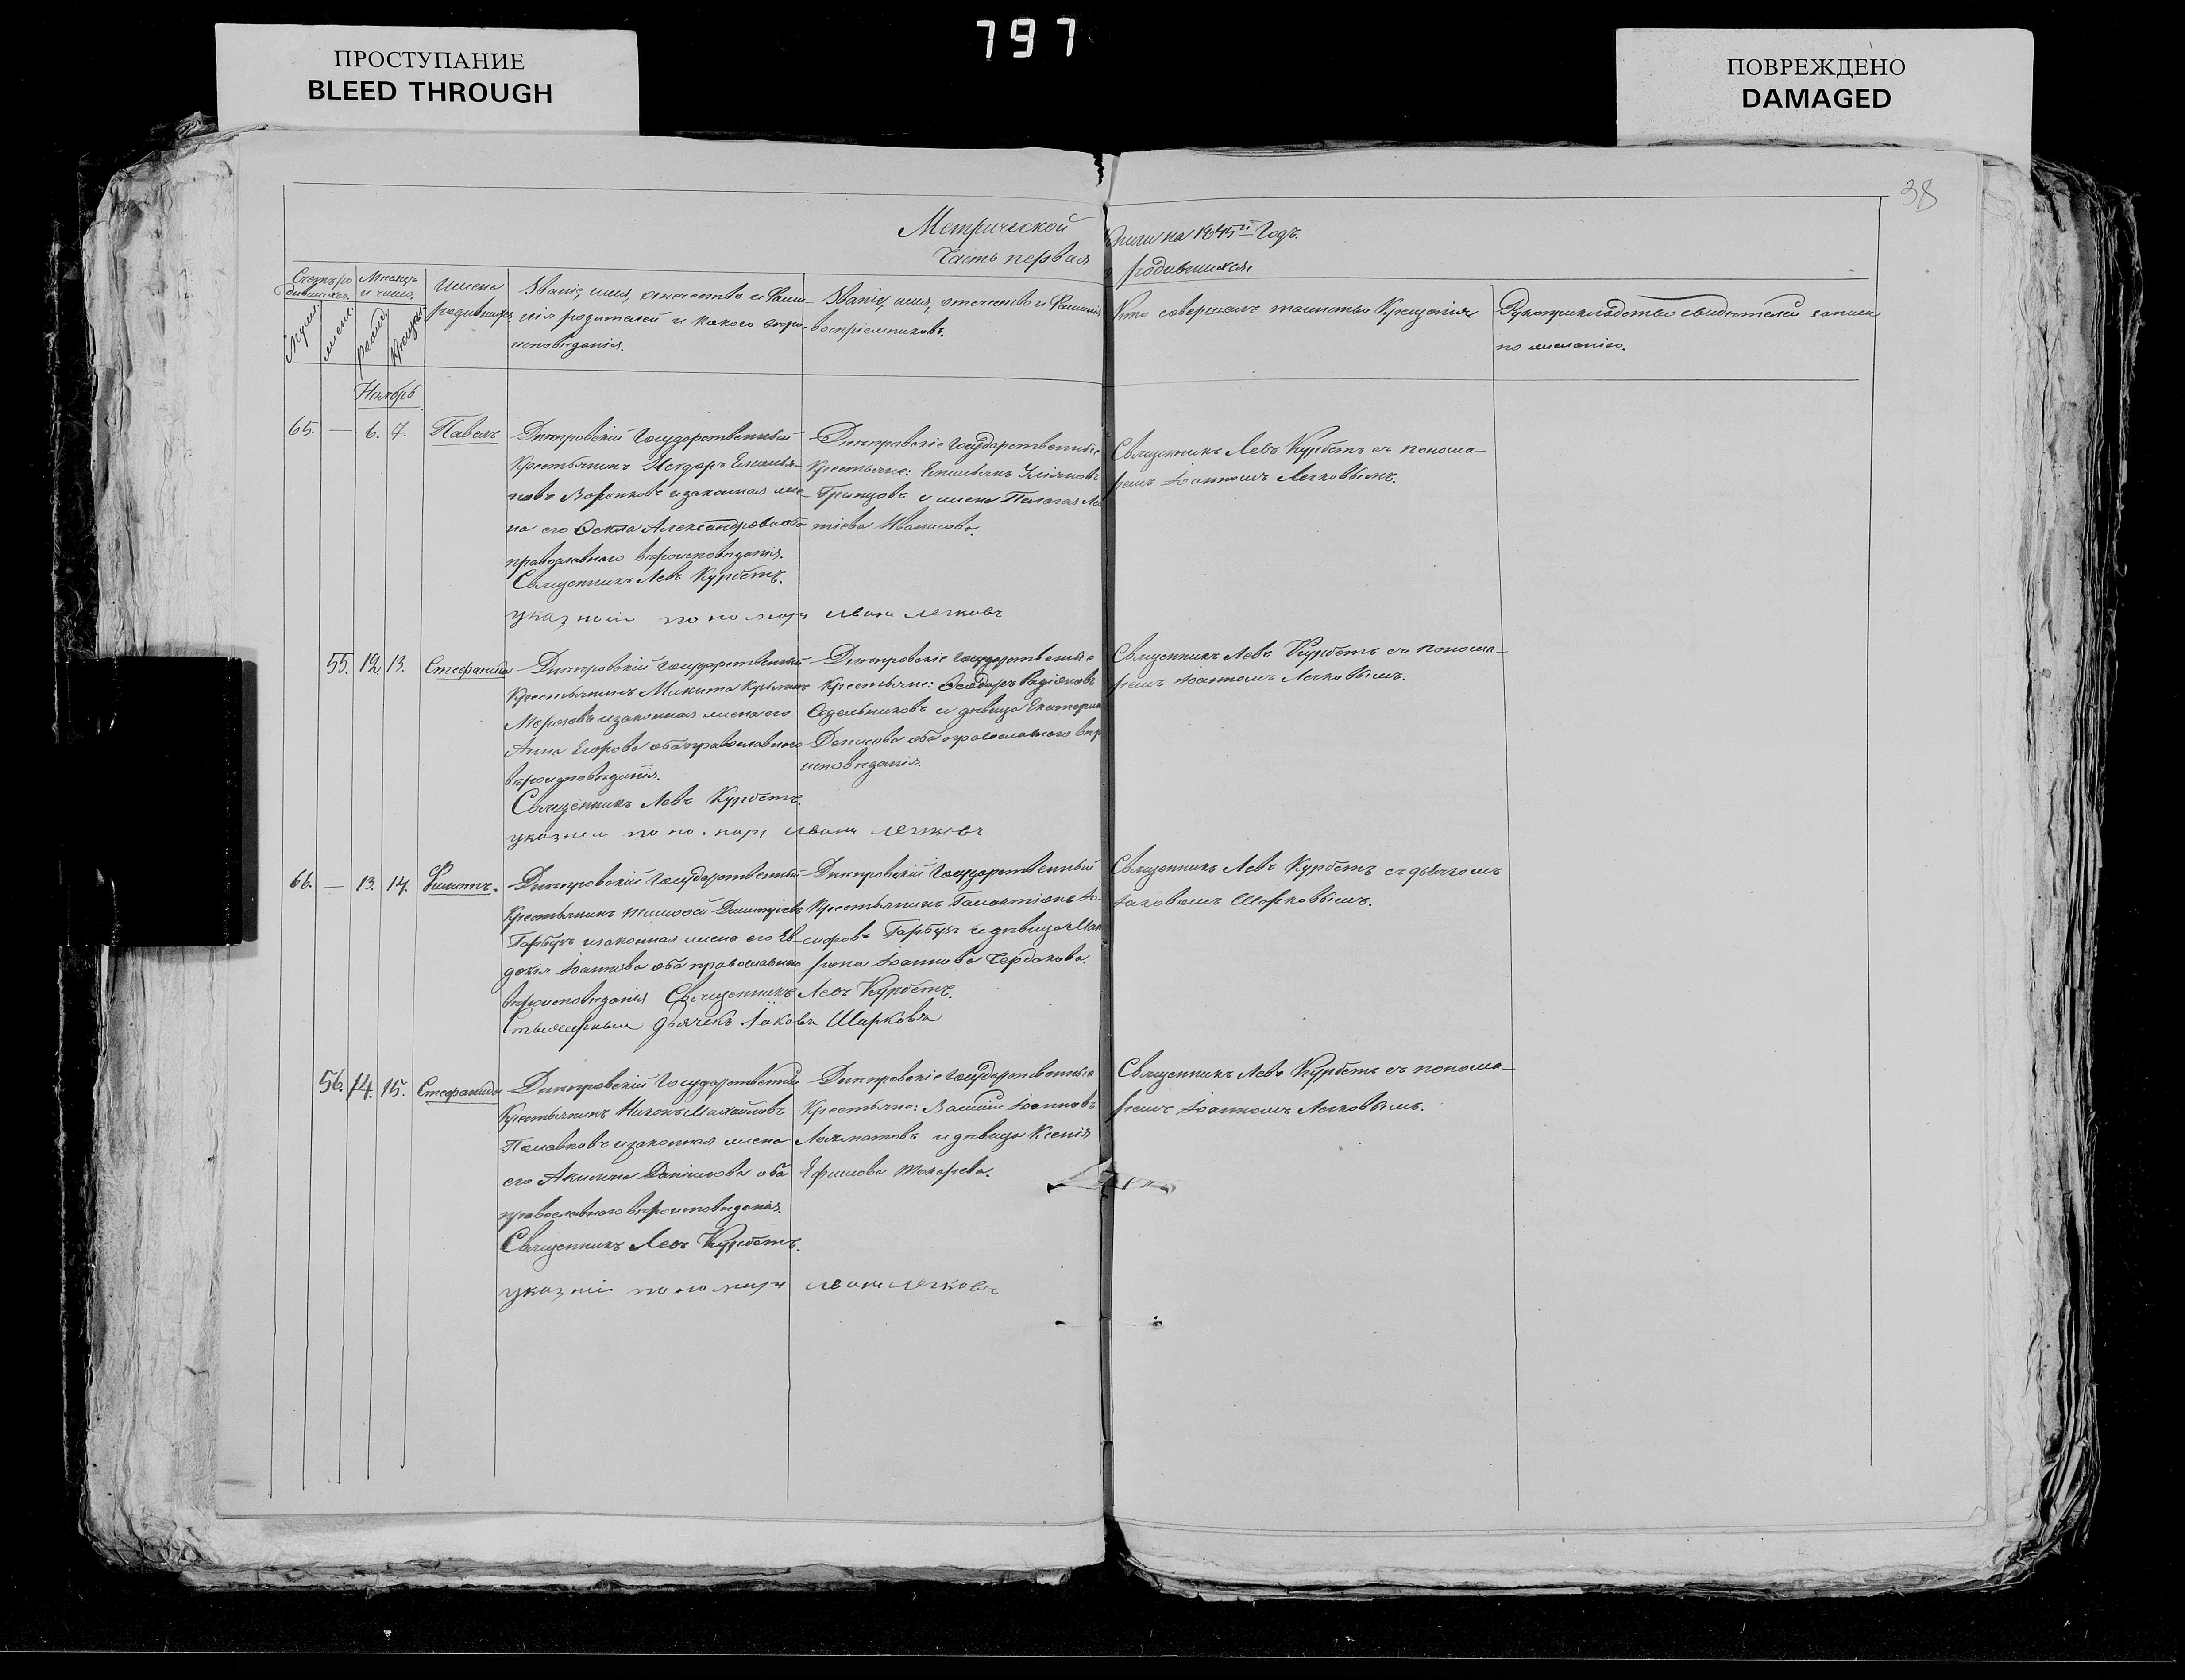 797
ПРОСТУПАНИЕ
BLEED THROUGH
ПОВРЕЖДЕНО
DAMAGED
38
Метрической книги на 1845й Годъ.
Часть первая о родившихся
Счетъ ро
дившихся.
Мужс.
женс.
Месяцъ
и число.
рожд.
крещен.
Имена
родившихъ
Званіе, имя, отчество и Фами-
лія родителей и какого веро-
исповѣданія.
Званіе, имя, отчество и Фамилія
воспріемниковъ.
Кто совершалъ таинство Крещенія
Рукоприкладство свидѣтелей записи
по желанію.
Ноябрь
65. — 6. 7. Павелъ
Днѣпровскій Государственный
Крестьянинъ Емелья-
новъ Воронковъ и законная же-
на его Александрова оба
православнаго вѣроисповѣданія.
Священникъ Левъ Курбетъ.
указній пономарь Иванъ Легковъ
Днѣпровскіе Государственные
Крестьяне: Емельянъ
и жена Пелагея
Иванова.
Священникъ Левъ Курбетъ съ понома-
ремъ Іоанномъ Легковымъ.
55. 12. 13. Стефанида
Днѣпровскій Государственный
Крестьянинъ Микита
Морозовъ и законная жена его
Анна Егорова оба православнаго
вѣроисповѣданія.
Священникъ Левъ Курбетъ.
указній пономарь Иванъ Легковъ
Днѣпровскіе Государственные
Крестьяне: Ѳеодоръ Радіоновъ
Седельниковъ и дѣвица Екатерина
Денисова оба православнаго вѣро
исповѣданія.
Священникъ Левъ Курбетъ съ понома-
ремъ Іоанномъ Легковымъ.
66. — 13. 14. Филиппъ.
Днѣпровскій Государственный
Крестьянинъ Тимофей Димитріевъ
Гарбузъ и законная жена его Ев-
докія Іоаннова оба православнаго
вѣроисповѣданія Священникъ Левъ Курбетъ.
дьячекъ Іаковъ Шарковъ
Днѣпровскій Государственный
Крестьянинъ
Гарбузъ и дѣвица
Іоаннова Чердакова.
Священникъ Левъ Курбетъ съ дьячкомъ
Іаковомъ Шарковымъ.
56. 14. 15. Стефанида
Днѣпровскій Государственный
Крестьянинъ Никонъ Михайловъ
и законная жена
его Акилина Даніилова оба
православнаго вѣроисповѣданія.
Священникъ Левъ Курбетъ.
указній пономарь Иванъ Легковъ
Днѣпровскіе Государственные
Крестьяне: Василій Іоанновъ
Лахматовъ и дѣвица Ксенія
Ефимова Токарева.
Священникъ Левъ Курбетъ съ понома-
ремъ Іоанномъ Легковымъ.